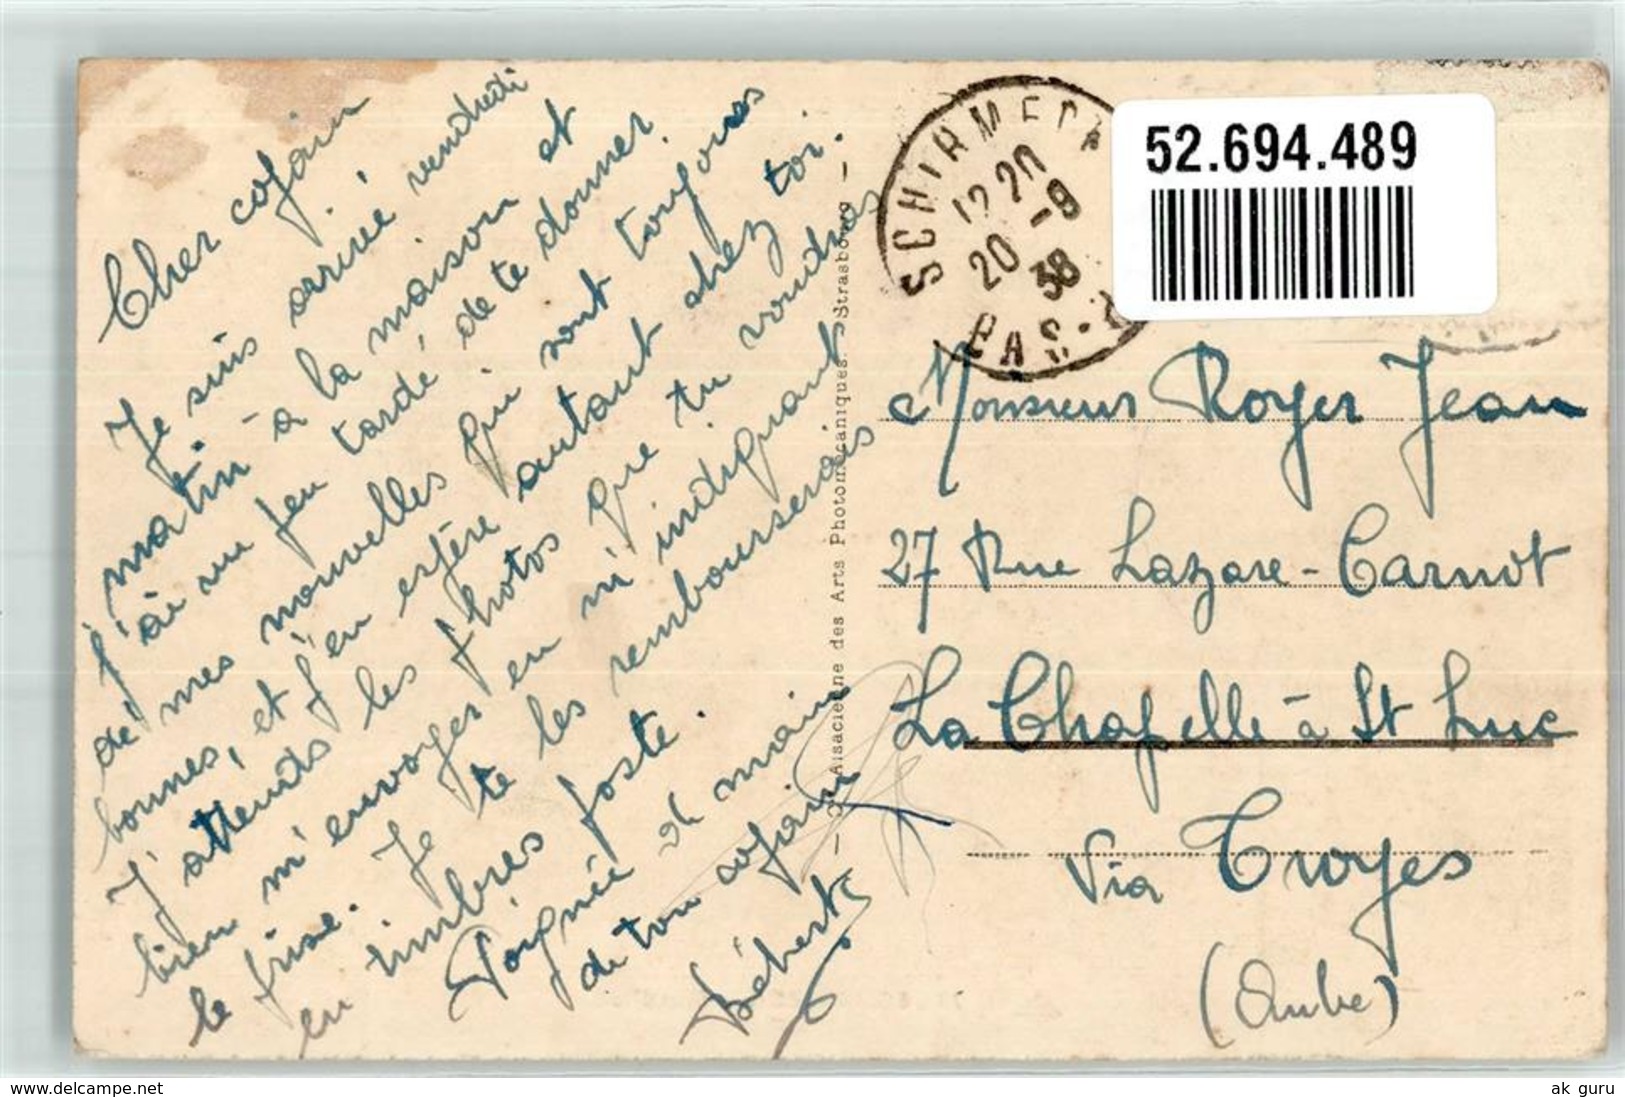 Cher cofain
Je suis arrivé vendredi
matin à la maison et
j'ai un peu tardé de te donner
de mes nouvelles qui sont toujours
bonnes, et j'en espère autant chez toi.
J'attends les photos que tu voudras
bien m'envoyer en m'indiquant
le prix. Je te les rembourserais
en timbres poste.
Poignée de main
de ton cofain
Bébert
Alsacienne des Arts Photomécaniques. Strasbourg
SCHIRMECK
12 20
20 -9
38
BAS-R
52.694.489
Monsieur Royer Jean
27 Rue Lazare-Carnot
La Chapelle à St Luc
Via Troyes
(Aube)
www.delcampe.net
ak guru